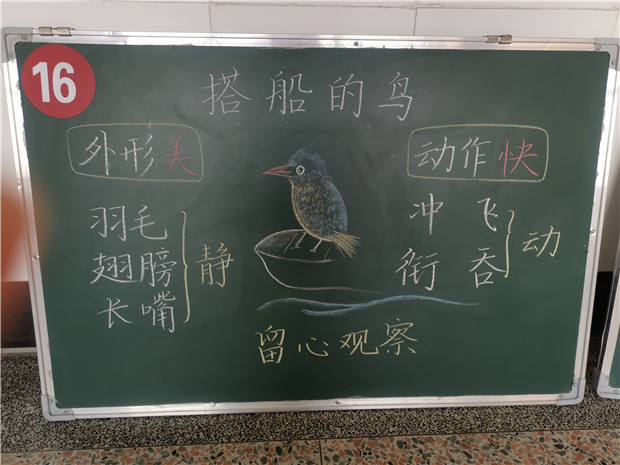 16
搭船的鸟
外形美
动作快
羽毛
翅膀
长嘴
静
冲 飞
衔 吞
动
留心观察